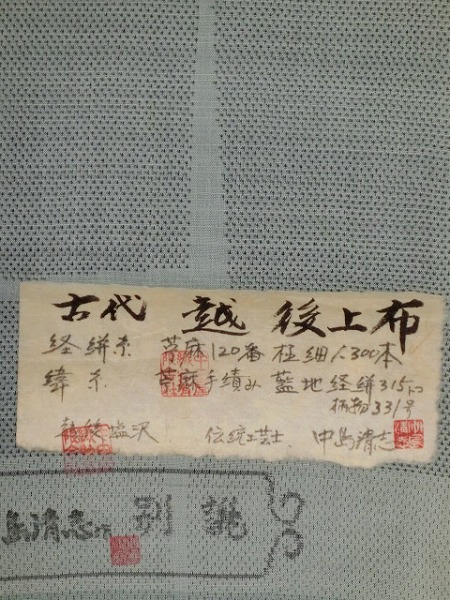 古代 越後上布
経絣糸 苧麻120番 極細1.300本
緯糸 苧麻手績み 藍地経絣315
柄物331号
越後塩沢 伝統工芸士 中島清志
島清志作 別誂